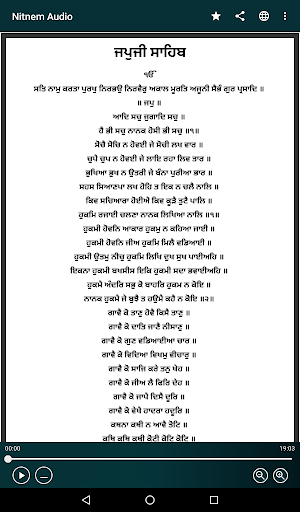 Nitnem Audio
ਜਪੁਜੀ ਸਾਹਿਬ
ੴ
ਸਤਿ ਨਾਮੁ ਕਰਤਾ ਪੁਰਖੁ ਨਿਰਭਉ ਨਿਰਵੈਰੁ ਅਕਾਲ ਮੂਰਤਿ ਅਜੂਨੀ ਸੈਭੰ ਗੁਰ ਪ੍ਰਸਾਦਿ ॥
॥ ਜਪੁ ॥
ਆਦਿ ਸਚੁ ਜੁਗਾਦਿ ਸਚੁ ॥
ਹੈ ਭੀ ਸਚੁ ਨਾਨਕ ਹੋਸੀ ਭੀ ਸਚੁ ॥੧॥
ਸੋਚੈ ਸੋਚਿ ਨ ਹੋਵਈ ਜੇ ਸੋਚੀ ਲਖ ਵਾਰ ॥
ਚੁਪੈ ਚੁਪ ਨ ਹੋਵਈ ਜੇ ਲਾਇ ਰਹਾ ਲਿਵ ਤਾਰ ॥
ਭੁਖਿਆ ਭੁਖ ਨ ਉਤਰੀ ਜੇ ਬੰਨਾ ਪੁਰੀਆ ਭਾਰ ॥
ਸਹਸ ਸਿਆਣਪਾ ਲਖ ਹੋਹਿ ਤ ਇਕ ਨ ਚਲੈ ਨਾਲਿ ॥
ਕਿਵ ਸਚਿਆਰਾ ਹੋਈਐ ਕਿਵ ਕੂੜੈ ਤੁਟੈ ਪਾਲਿ ॥
ਹੁਕਮਿ ਰਜਾਈ ਚਲਣਾ ਨਾਨਕ ਲਿਖਿਆ ਨਾਲਿ ॥੧॥
ਹੁਕਮੀ ਹੋਵਨਿ ਆਕਾਰ ਹੁਕਮੁ ਨ ਕਹਿਆ ਜਾਈ ॥
ਹੁਕਮੀ ਹੋਵਨਿ ਜੀਅ ਹੁਕਮਿ ਮਿਲੈ ਵਡਿਆਈ ॥
ਹੁਕਮੀ ਉਤਮੁ ਨੀਚੁ ਹੁਕਮਿ ਲਿਖਿ ਦੁਖ ਸੁਖ ਪਾਈਅਹਿ ॥
ਇਕਨਾ ਹੁਕਮੀ ਬਖਸੀਸ ਇਕਿ ਹੁਕਮੀ ਸਦਾ ਭਵਾਈਅਹਿ ॥
ਹੁਕਮੈ ਅੰਦਰਿ ਸਭੁ ਕੋ ਬਾਹਰਿ ਹੁਕਮ ਨ ਕੋਇ ॥
ਨਾਨਕ ਹੁਕਮੈ ਜੇ ਬੁਝੈ ਤ ਹਉਮੈ ਕਹੈ ਨ ਕੋਇ ॥੨॥
ਗਾਵੈ ਕੋ ਤਾਣੁ ਹੋਵੈ ਕਿਸੈ ਤਾਣੁ ॥
ਗਾਵੈ ਕੋ ਦਾਤਿ ਜਾਣੈ ਨੀਸਾਣੁ ॥
ਗਾਵੈ ਕੋ ਗੁਣ ਵਡਿਆਈਆ ਚਾਰ ॥
ਗਾਵੈ ਕੋ ਵਿਦਿਆ ਵਿਖਮੁ ਵੀਚਾਰੁ ॥
ਗਾਵੈ ਕੋ ਸਾਜਿ ਕਰੇ ਤਨੁ ਖੇਹ ॥
ਗਾਵੈ ਕੋ ਜੀਅ ਲੈ ਫਿਰਿ ਦੇਹ ॥
ਗਾਵੈ ਕੋ ਜਾਪੈ ਦਿਸੈ ਦੂਰਿ ॥
ਗਾਵੈ ਕੋ ਵੇਖੈ ਹਾਦਰਾ ਹਦੂਰਿ ॥
ਕਥਨਾ ਕਥੀ ਨ ਆਵੈ ਤੋਟਿ ॥
ਕਥਿ ਕਥਿ ਕਥੀ ਕੋਟੀ ਕੋਟਿ ਕੋਟਿ ॥
00:00 19:03